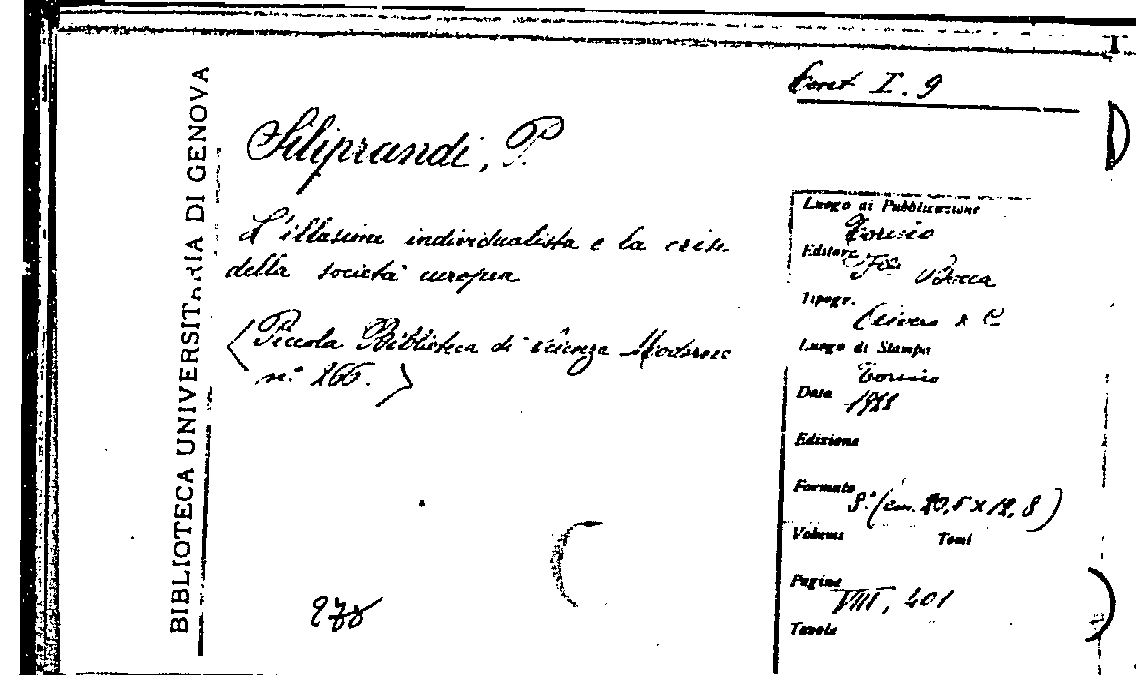 BIBLIOTECA UNIVERSITARIA DI GENOVA
I. 9
Siliprandi, P.
L'illusione individualista e la crisi
della società europea
(Piccola Biblioteca di Scienze Moderne
n.° 266.)
Luogo di Pubblicazione
Torino
Editore F.lli Bocca
Tipogr.
& C.
Luogo di Stampa
Torino
Data
Edizione
Formato 8.° (cm. 20,5 x 12,8)
Volume Tomi
Pagine VIII, 401
Tavole